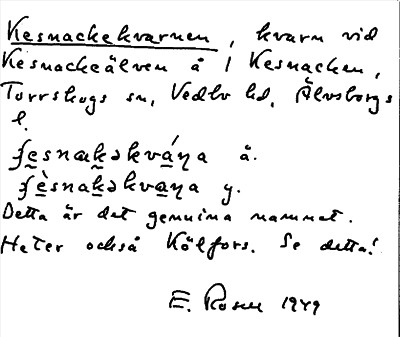 Kesnackekvarnen, kvarn vid
Kesnackeälven å / Kesnacken,
Torrskogs sn, Vedbo hd, Älvsborgs
l.
ʃe̲snak̲əkvá̲ꞃa ä.
ʃè̲snak̲əkva̲ꞃa y.
Detta är det genuina namnet.
Heter också Kölfors. Se detta!
E. Rosell 1949